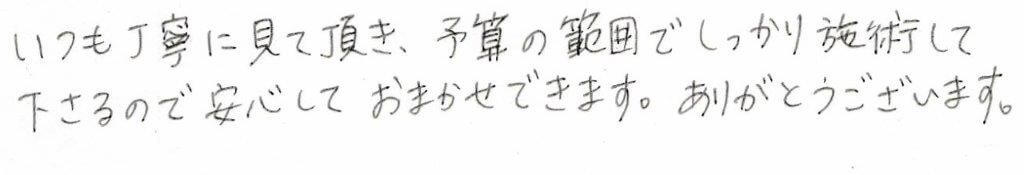 いつも丁寧に見て頂き、予算の範囲でしっかり施術して
下さるので安心して おまかせできます。ありがとうございます。